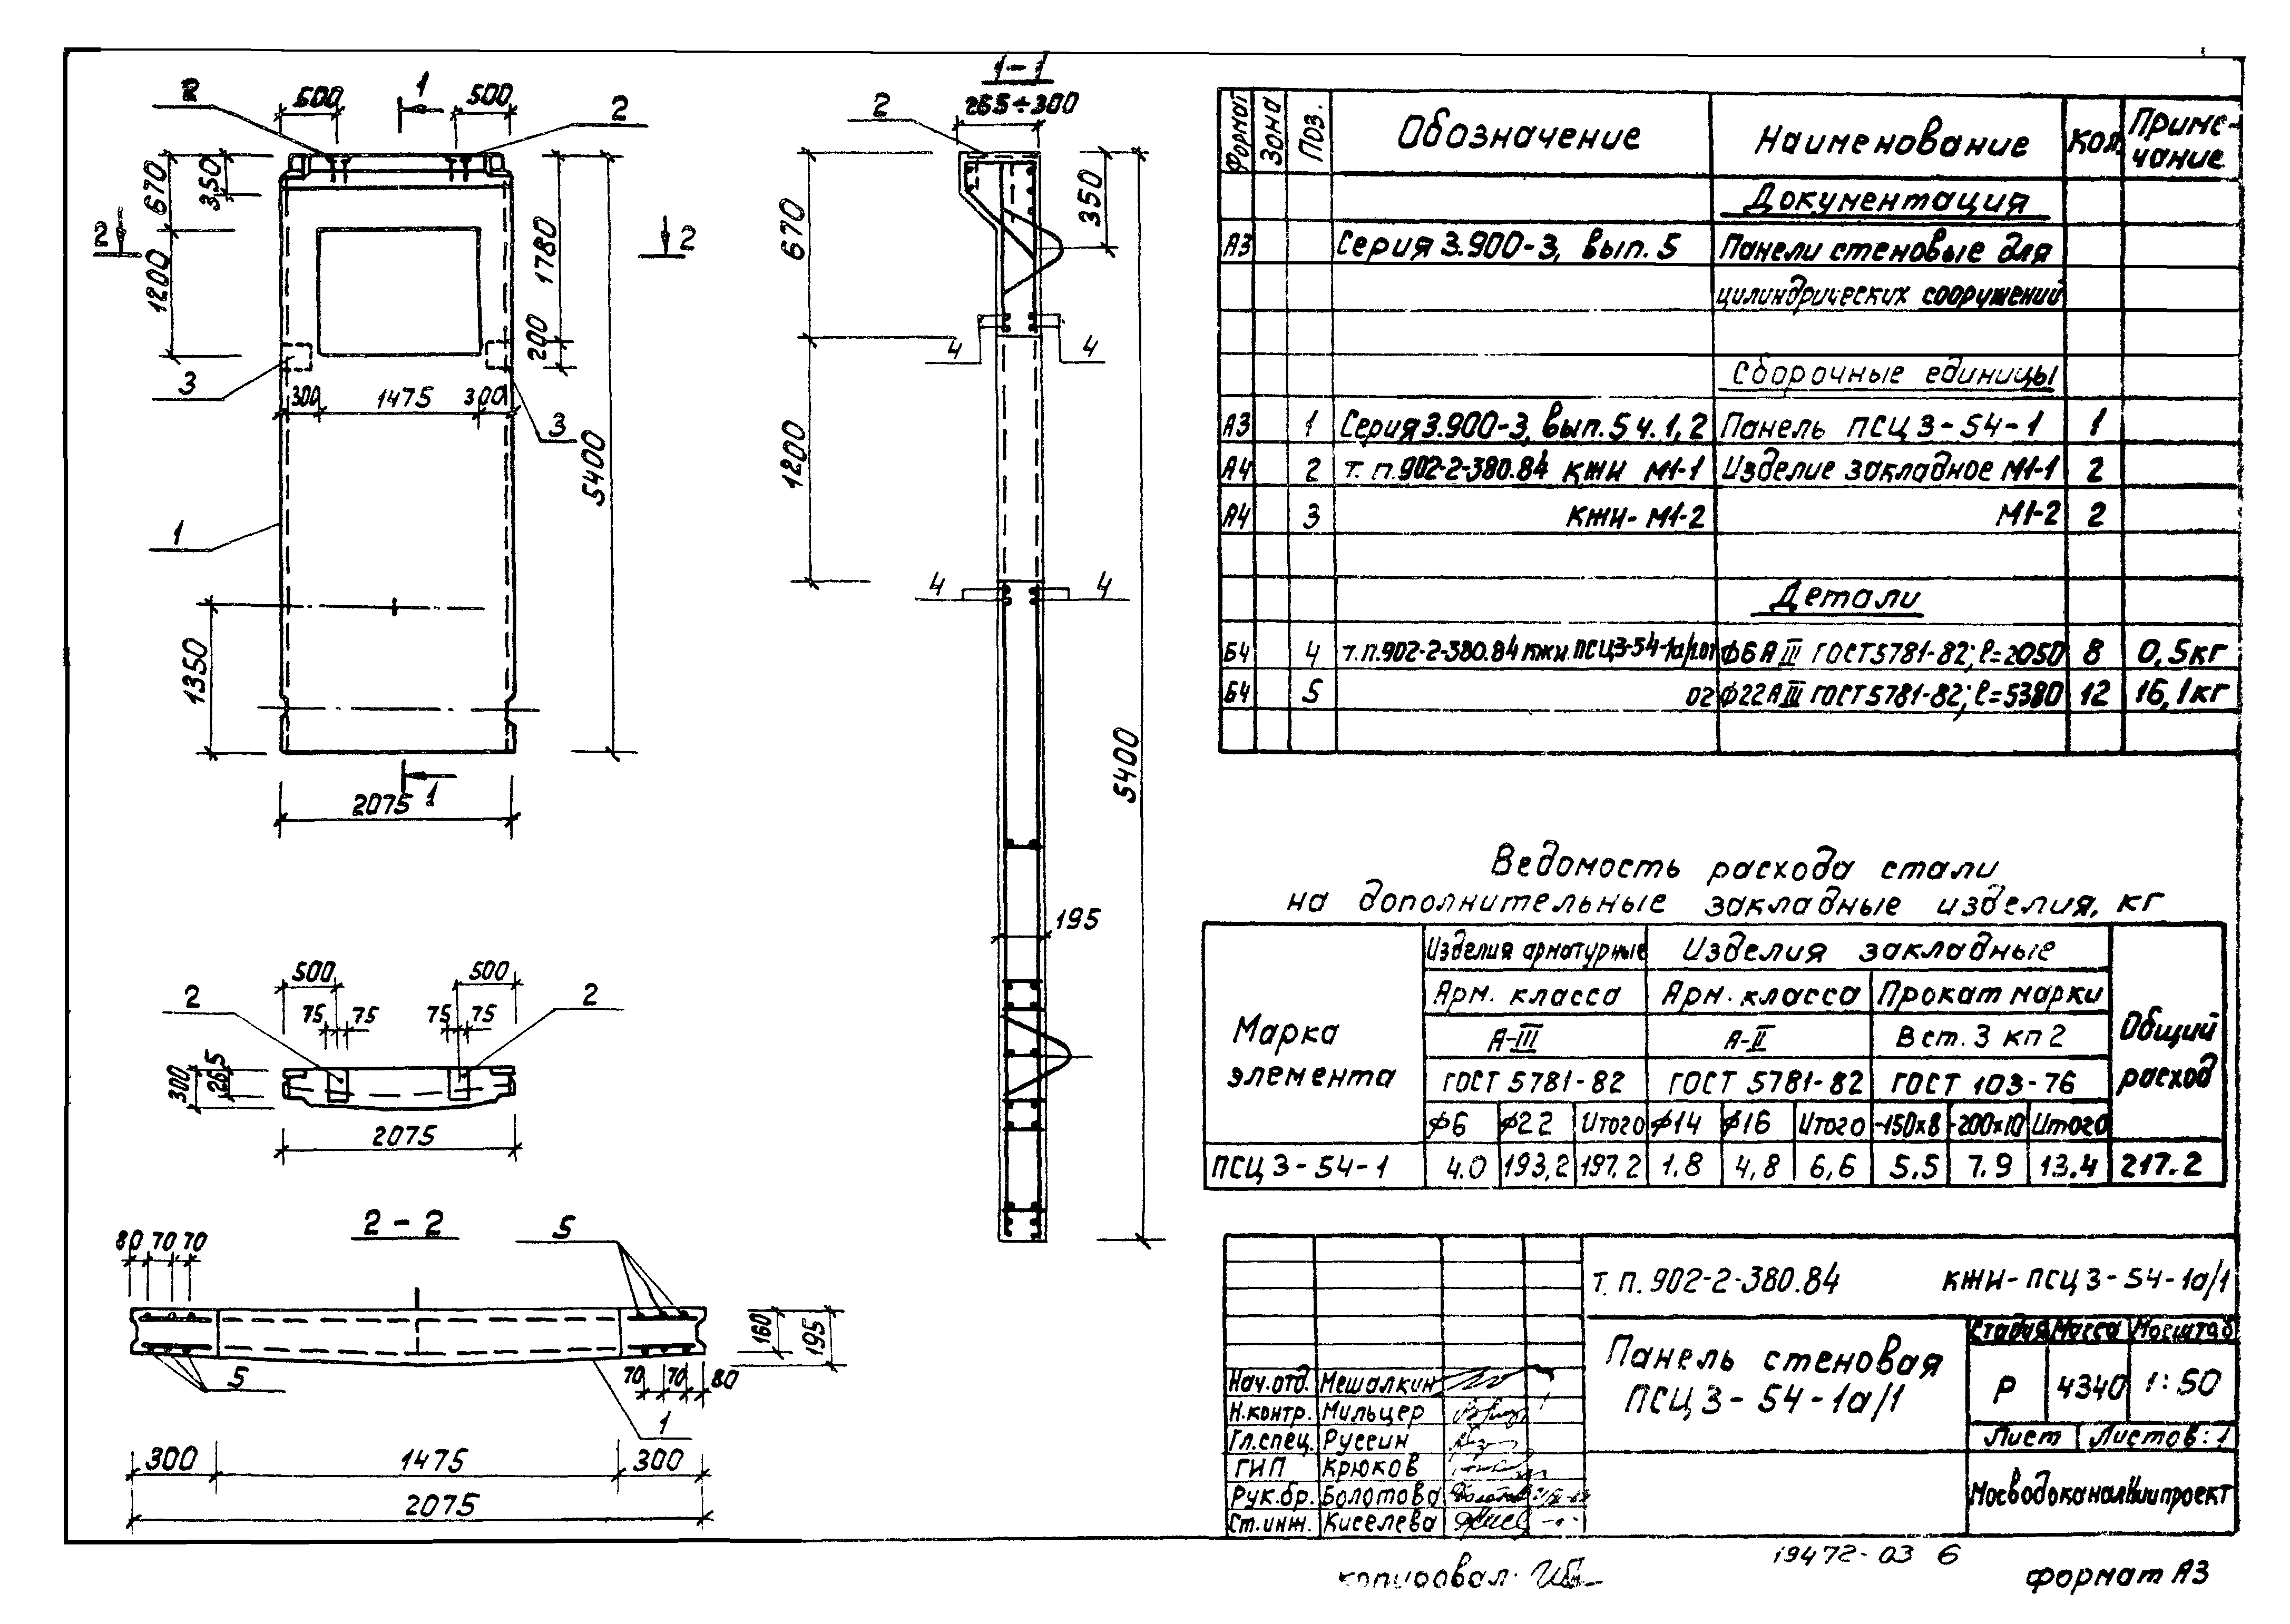 2
500
1
500
2
670
350
1200
2
1780
200
2
3
300
1475
300
3
5400
1
1350
1
2075
500
500
2
75
75
75
75
2
300
265
2075
2-2
80 70 70
5
160
195
5
70 70 80
1
300
1475
300
2075
1-1
265÷300
2
670
350
4
4
1200
4
4
5400
195
Формат Зона Поз. Обозначение Наименование Кол. Приме-
чание
Документация
А3 Серия 3.900-3, вып. 5 Панели стеновые для
цилиндрических сооружений
Сборочные единицы
А3 1 Серия 3.900-3, вып. 5 ч. 1, 2 Панель ПСЦ 3-54-1 1
А4 2 т. п. 902-2-380.84 КЖИ М1-1 Изделие закладное М1-1 2
А4 3 КЖИ-М1-2 М1-2 2
Детали
Б4 4 т.п.902-2-380.84 КЖИ. ПСЦ3-54-1а/1.01 ф6АIII ГОСТ5781-82; ℓ=2050 8 0,5кг
Б4 5 02 ф22АIII ГОСТ5781-82; ℓ=5380 12 16,1кг
Ведомость расхода стали
на дополнительные закладные изделия, кг
Марка
элемента
Изделия арматурные Изделия закладные
Общий
расход
Арм. класса Арм. класса Прокат марки
А-III А-II В ст. 3 кп 2
ГОСТ 5781-82 ГОСТ 5781-82 ГОСТ 103-76
ф6 ф22 Итого ф14 ф16 Итого -150х8 -200х10 Итого
ПСЦ 3-54-1 4.0 193,2 197.2 1.8 4,8 6,6 5.5 7.9 13.4 217.2
т. п. 902-2-380.84 КЖИ-ПСЦ 3-54-1а/1
Панель стеновая
ПСЦ 3-54-1а/1
Стадия Масса Масштаб
Р 4340 1:50
Лист Листов: 1
МосводоканалНИИпроект
Нач.отд. Мешалкин
Н.контр. Мильцер
Гл.спец. Руссин
ГИП Крюков
Рук.бр. Болотова
Ст.инж. Киселева
копировал:
19472-03 6
формат А3